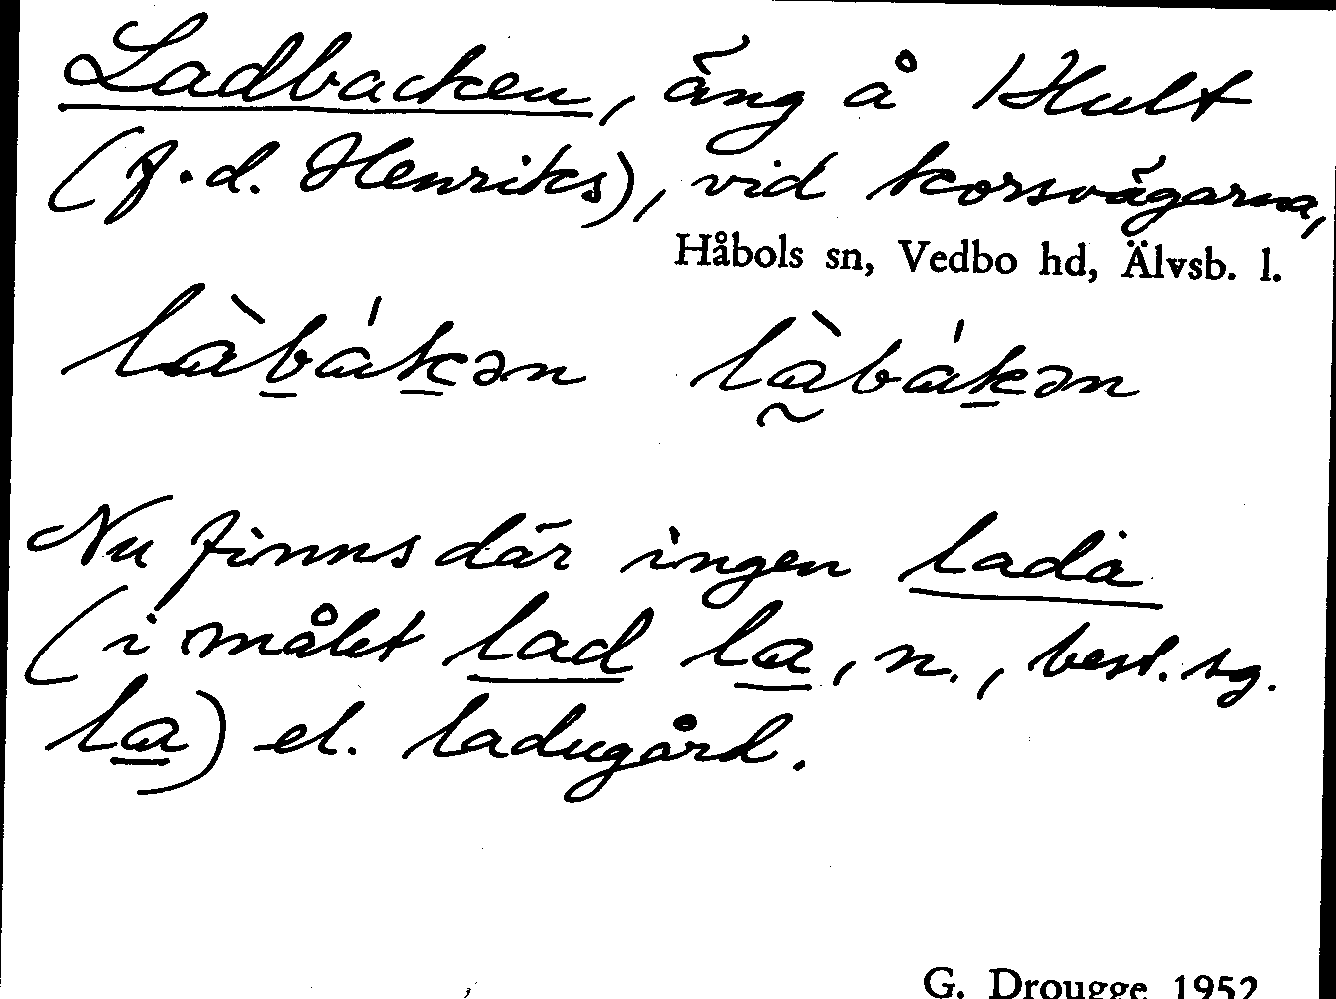 Ladbacken, äng å Hult
(f.d. Henriks), vid korsvägarna,
Håbols sn, Vedbo hd, Älvsb. l.
làbákən làbákən
Nu finns där ingen lada
(i målet lad la, n., best. sg.
la) el. ladugård.
G. Drougge 1952